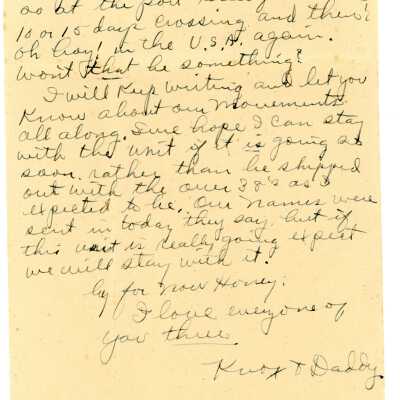 at the port
10 or 15 days crossing and then!
Oh boy! in the U.S.A. again.
Wont that be something?
I will keep writing and let you
know about our movements
all along. Sure hope I can stay
with the unit if it is going so
soon rather than be shipped
out with the over 38's as I
expected to be. Our names were
sent in today they say but if
this unit is really going expect
we will stay with it.
by for now Honey.
I love everyone of
you three.
Knox & Daddy